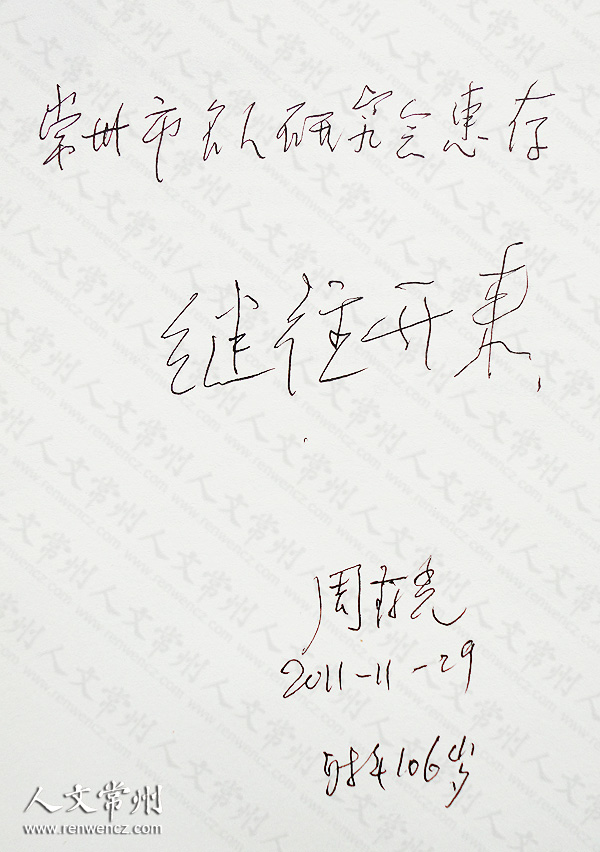 常州市名人研究会惠存
继往开来
周有光
2011-11-29
时年106岁
人文常州
www.renwencz.com